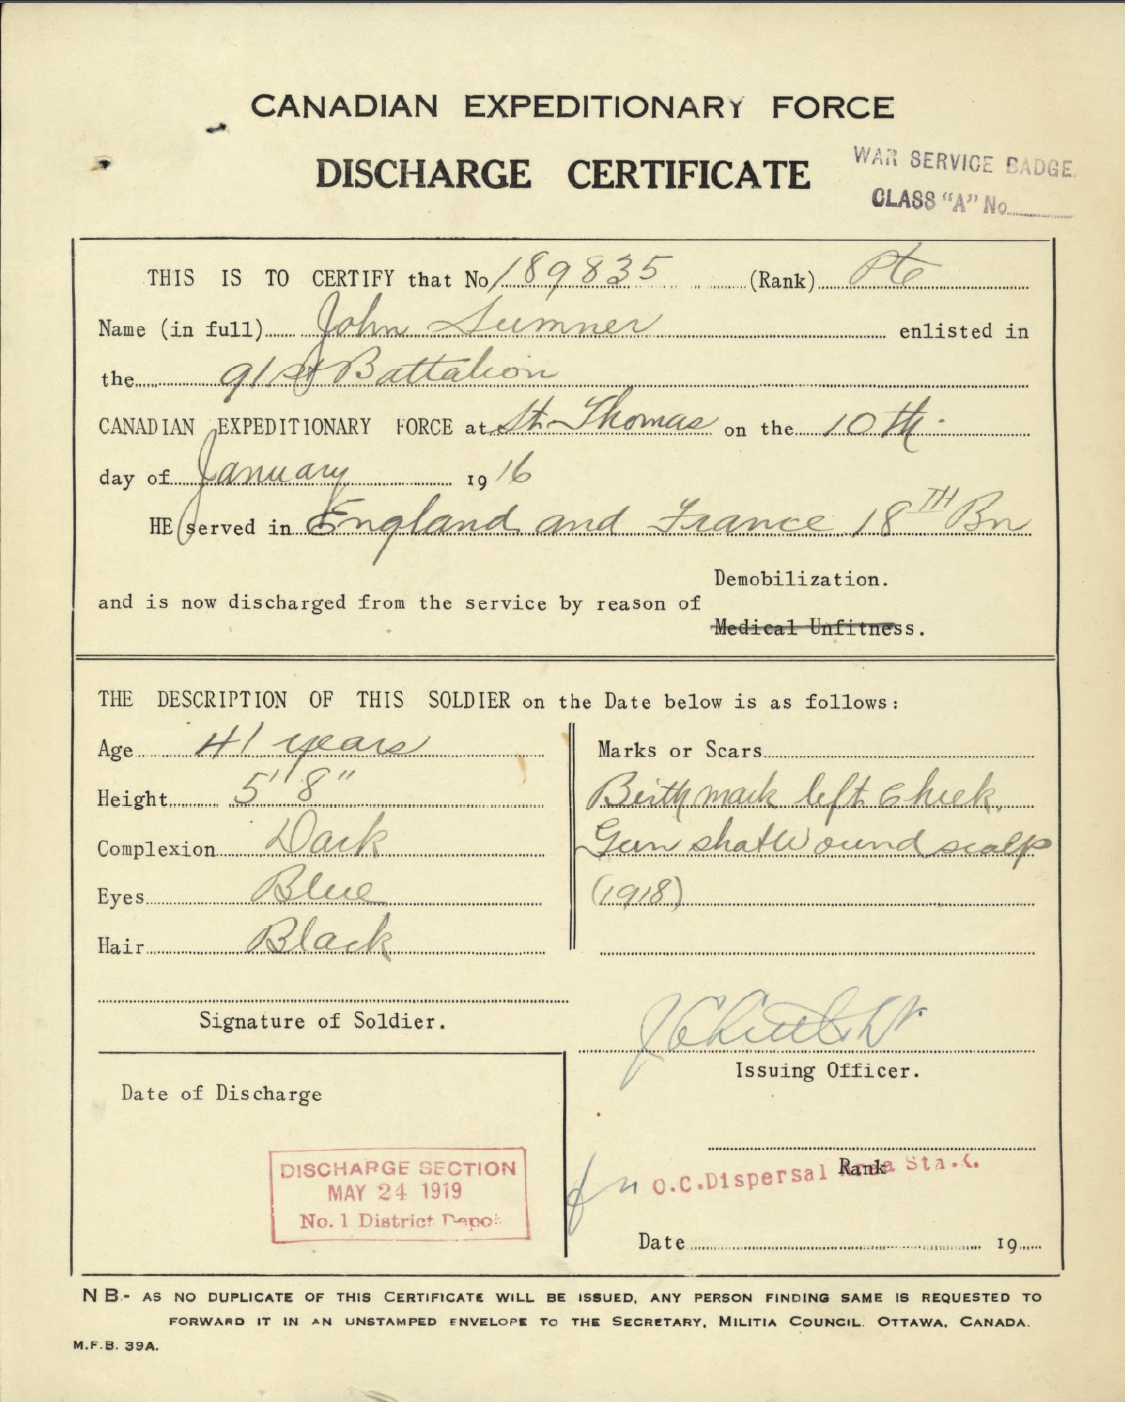 CANADIAN EXPEDITIONARY FORCE
DISCHARGE CERTIFICATE
WAR SERVICE BADGE
CLASS "A" No
THIS IS TO CERTIFY that No 189835 (Rank) Pte
Name (in full) John Sumner enlisted in
the 91st Battalion
CANADIAN EXPEDITIONARY FORCE at St. Thomas on the 10th
day of January 1916
HE served in England and France 18TH Bn
Demobilization.
and is now discharged from the service by reason of
Medical Unfitness.
THE DESCRIPTION OF THIS SOLDIER on the Date below is as follows:
Age 41 years
Height 5' 8"
Complexion Dark
Eyes Blue
Hair Black
Marks or Scars
Birth mark left Cheek.
Gun shot Wound scalp
(1918)
Signature of Soldier.
Issuing Officer.
Date of Discharge
DISCHARGE SECTION
MAY 24 1919
No. 1 District Depot
Rank
O.C. Dispersal Area Sta. K.
Date 19
NB- AS NO DUPLICATE OF THIS CERTIFICATE WILL BE ISSUED, ANY PERSON FINDING SAME IS REQUESTED TO
FORWARD IT IN AN UNSTAMPED ENVELOPE TO THE SECRETARY, MILITIA COUNCIL. OTTAWA, CANADA.
M.F.B. 39A.